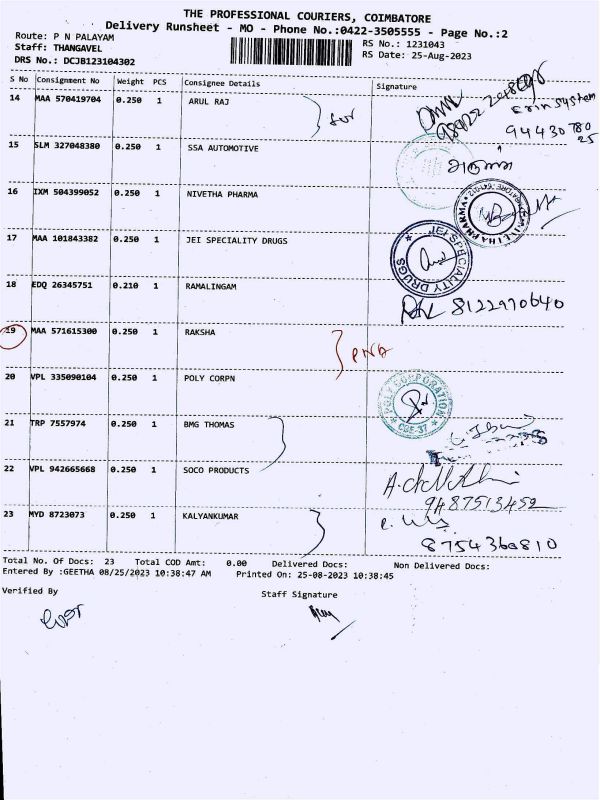 THE PROFESSIONAL COURIERS, COIMBATORE
Delivery Runsheet - MO - Phone No.:0422-3505555 - Page No.:2
Route: P N PALAYAM
Staff: THANGAVEL
DRS No.: DCJB123104302
RS No.: 1231043
RS Date: 25-Aug-2023
S No Consignment No Weight PCS Consignee Details Signature
14 MAA 570419704 0.250 1 ARUL RAJ
Erin System
94430 780
25
15 SLM 327048380 0.250 1 SSA AUTOMOTIVE
16 IXM 504399052 0.250 1 NIVETHA PHARMA
NIVETHA PHARMA
17 MAA 101843382 0.250 1 JEI SPECIALITY DRUGS
JEI SPECIALITY DRUGS
18 EDQ 26345751 0.210 1 RAMALINGAM
8122970640
19 MAA 571615300 0.250 1 RAKSHA
PNA
20 VPL 335090104 0.250 1 POLY CORPN
POLY CORPORATION
CBE-37
21 TRP 7557974 0.250 1 BMG THOMAS
22 VPL 942665668 0.250 1 SOCO PRODUCTS
9487513452
23 MYD 8723073 0.250 1 KALYANKUMAR
8754360810
Total No. Of Docs: 23 Total COD Amt: 0.00 Delivered Docs: Non Delivered Docs:
Entered By :GEETHA 08/25/2023 10:38:47 AM Printed On: 25-08-2023 10:38:45
Verified By
Staff Signature